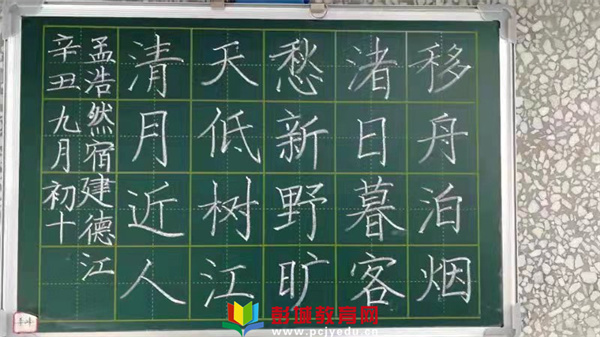 移舟泊烟
渚日暮客
愁新野旷
天低树江
清月近人
孟浩然宿建德江
辛丑九月初十
彭城教育网
www.pcjyedu.cn